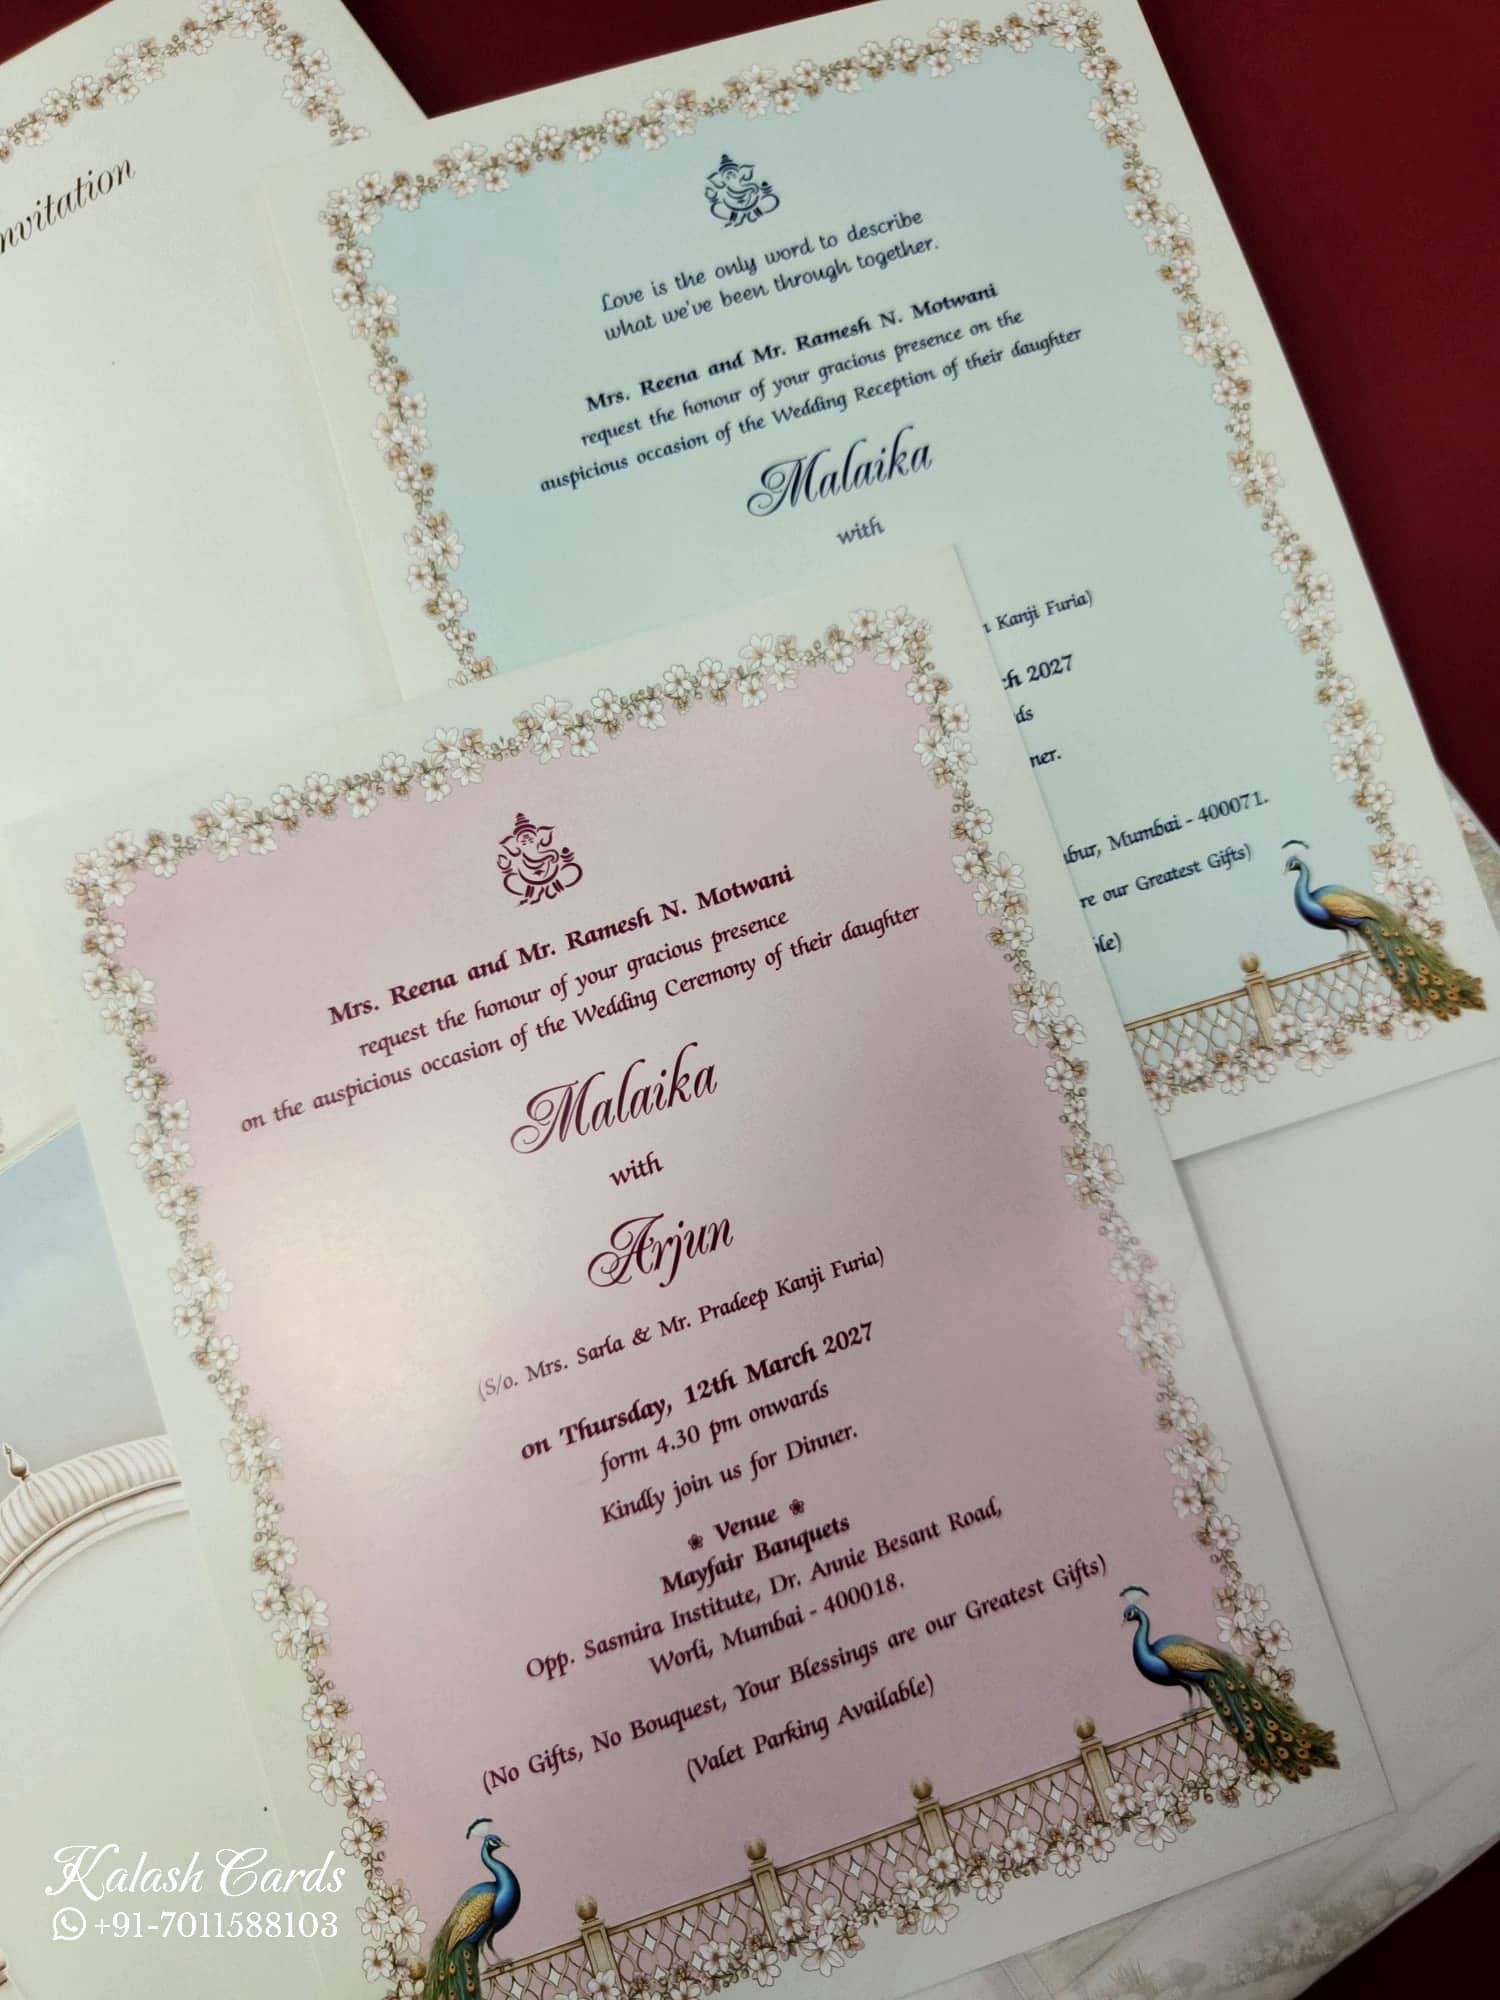 nvitation
Love is the only word to describe
what we've been through together.
Mrs. Reena and Mr. Ramesh N. Motwani
request the honour of your gracious presence on the
auspicious occasion of the Wedding Reception of their daughter
Malaika
with
Kanji Furia)
2027
Mumbai - 400071.
our Greatest Gifts)
Mrs. Reena and Mr. Ramesh N. Motwani
request the honour of your gracious presence
on the auspicious occasion of the Wedding Ceremony of their daughter
Malaika
with
Arjun
(S/o. Mrs. Sarla & Mr. Pradeep Kanji Furia)
on Thursday, 12th March 2027
form 4.30 pm onwards
Kindly join us for Dinner.
Venue
Mayfair Banquets
Opp. Sasmira Institute, Dr. Annie Besant Road,
Worli, Mumbai - 400018.
(No Gifts, No Bouquest, Your Blessings are our Greatest Gifts)
(Valet Parking Available)
Kalash Cards
+91-7011588103